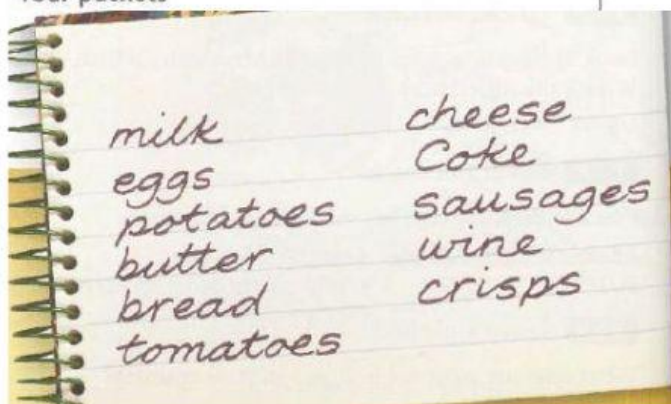 your packets
milk
eggs
potatoes
butter
bread
tomatoes
cheese
Coke
sausages
wine
crisps